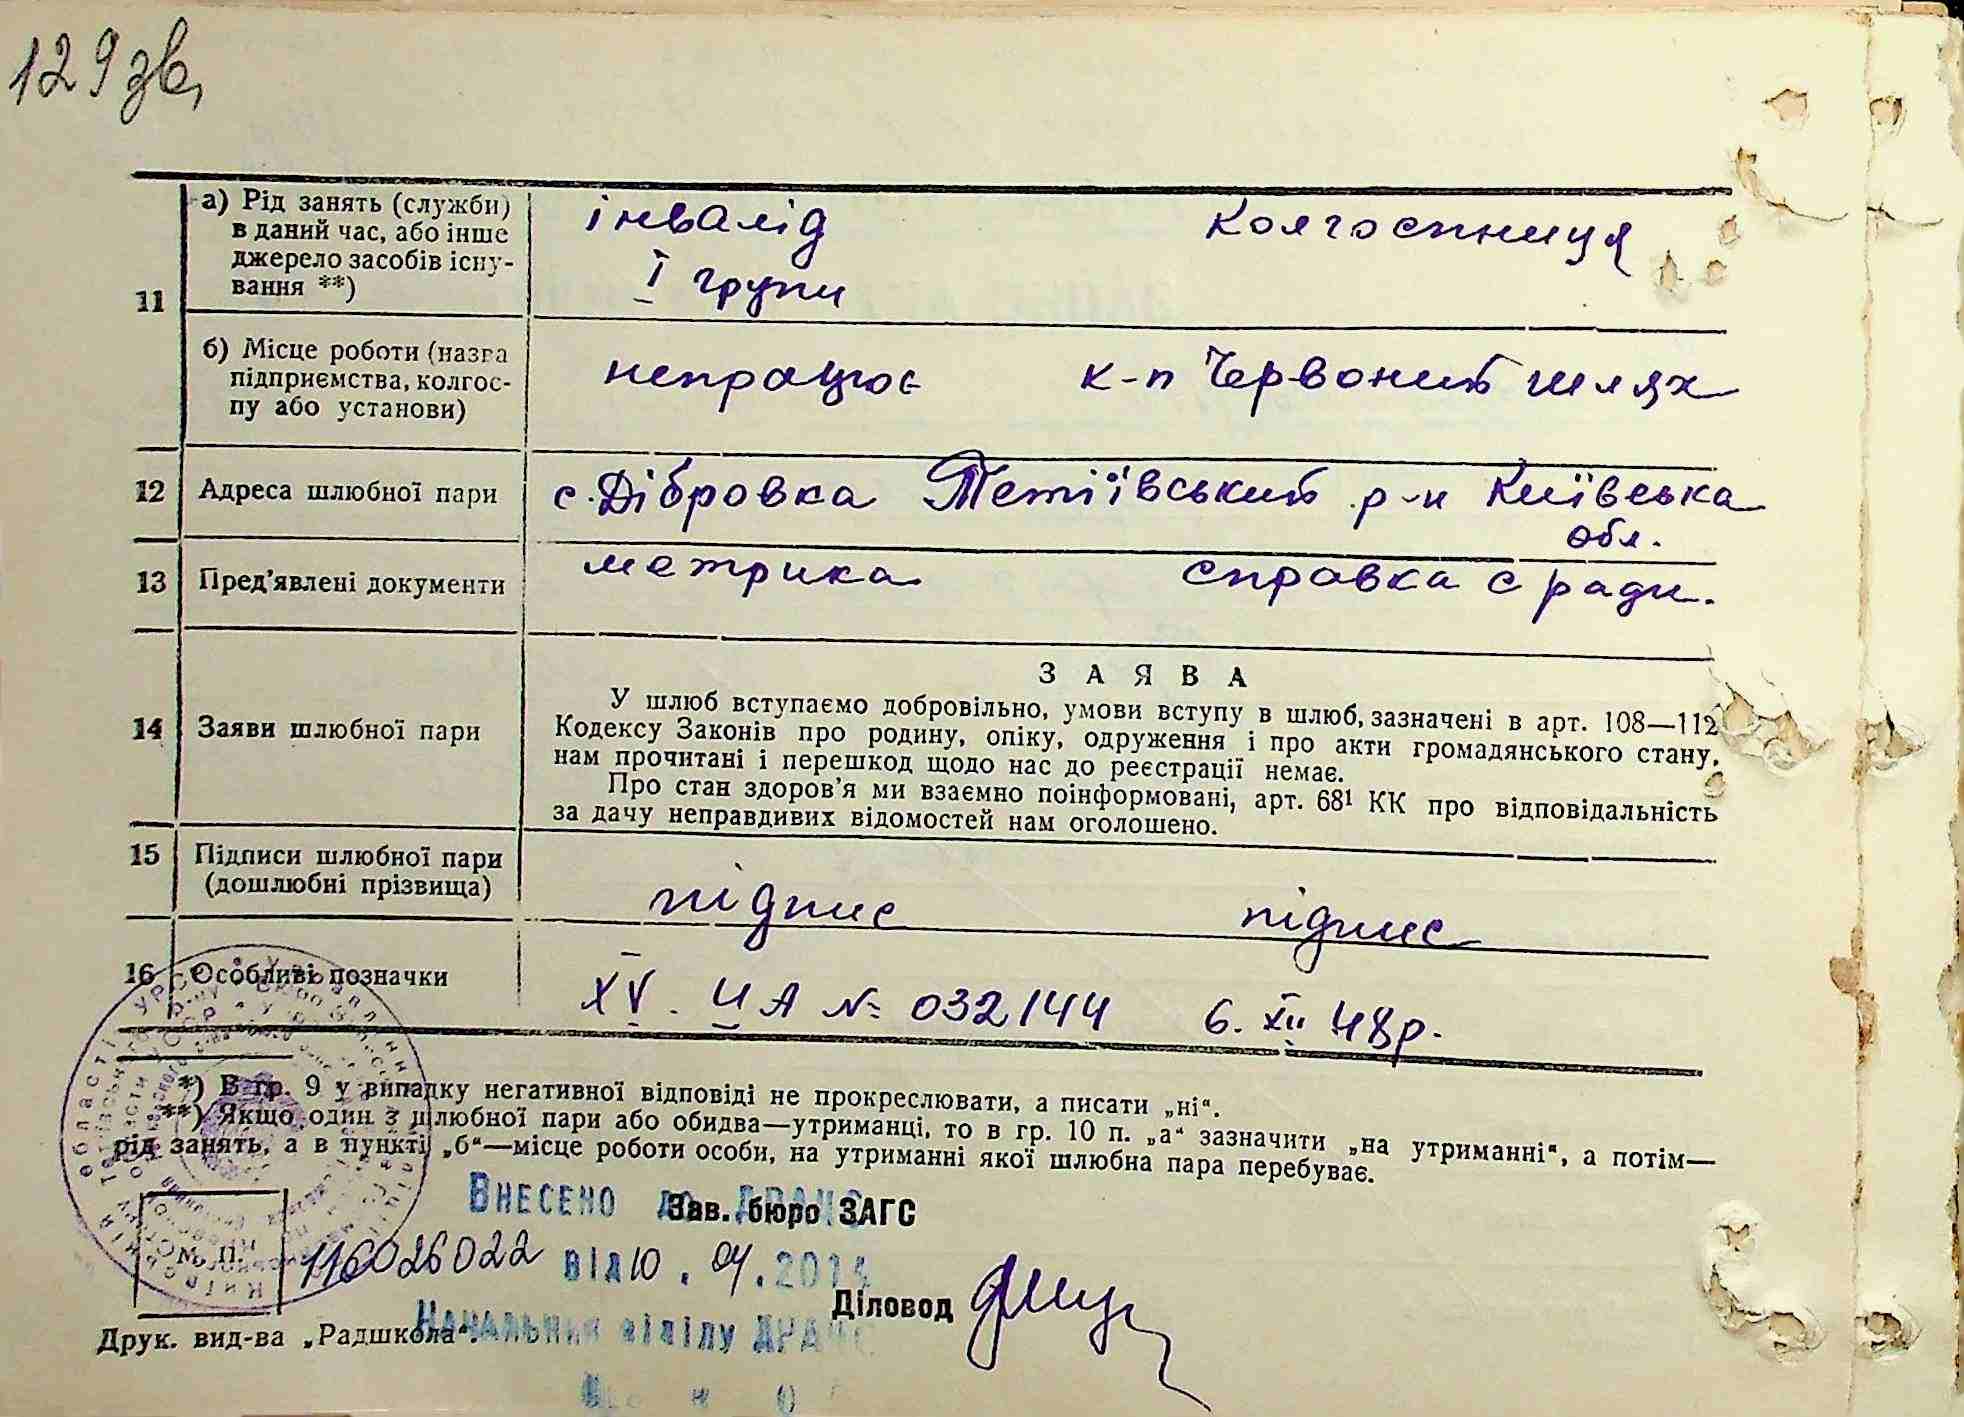 129 зв.
11
а) Рід занять (служби)
в даний час, або інше
джерело засобів існу-
вання **)
інвалід
І групи
колгоспниця
б) Місце роботи (назва
підприємства, колгос-
пу або установи)
непрацює
к-п Червоний шлях
12
Адреса шлюбної пари
с. Дібровка Тетіївський р-н Київська
обл.
13
Пред'явлені документи
метрика
справка с ради.
14
Заяви шлюбної пари
ЗАЯВА
У шлюб вступаємо добровільно, умови вступу в шлюб, зазначені в арт. 108—112
Кодексу Законів про родину, опіку, одруження і про акти громадянського стану,
нам прочитані і перешкод щодо нас до реєстрації немає.
Про стан здоров'я ми взаємно поінформовані, арт. 68¹ КК про відповідальність
за дачу неправдивих відомостей нам оголошено.
15
Підписи шлюбної пари
(дошлюбні прізвища)
підпис
підпис
16
Особливі позначки
XV. ЦА № 032144 6. XII 48р.
*) В гр. 9 у випадку негативної відповіді не прокреслювати, а писати „ні“.
**) Якщо один з шлюбної пари або обидва—утриманці, то в гр. 10 п. „а“ зазначити „на утриманні“, а потім—
рід занять, а в пункті „б“—місце роботи особи, на утриманні якої шлюбна пара перебуває.
Внесено до ДРАЦС
Зав. бюро ЗАГС
М. П.
116026022 від 10.04.2014
Діловод
Друк. вид-ва „Радшкола“.
Начальник відділу ДРАЦС